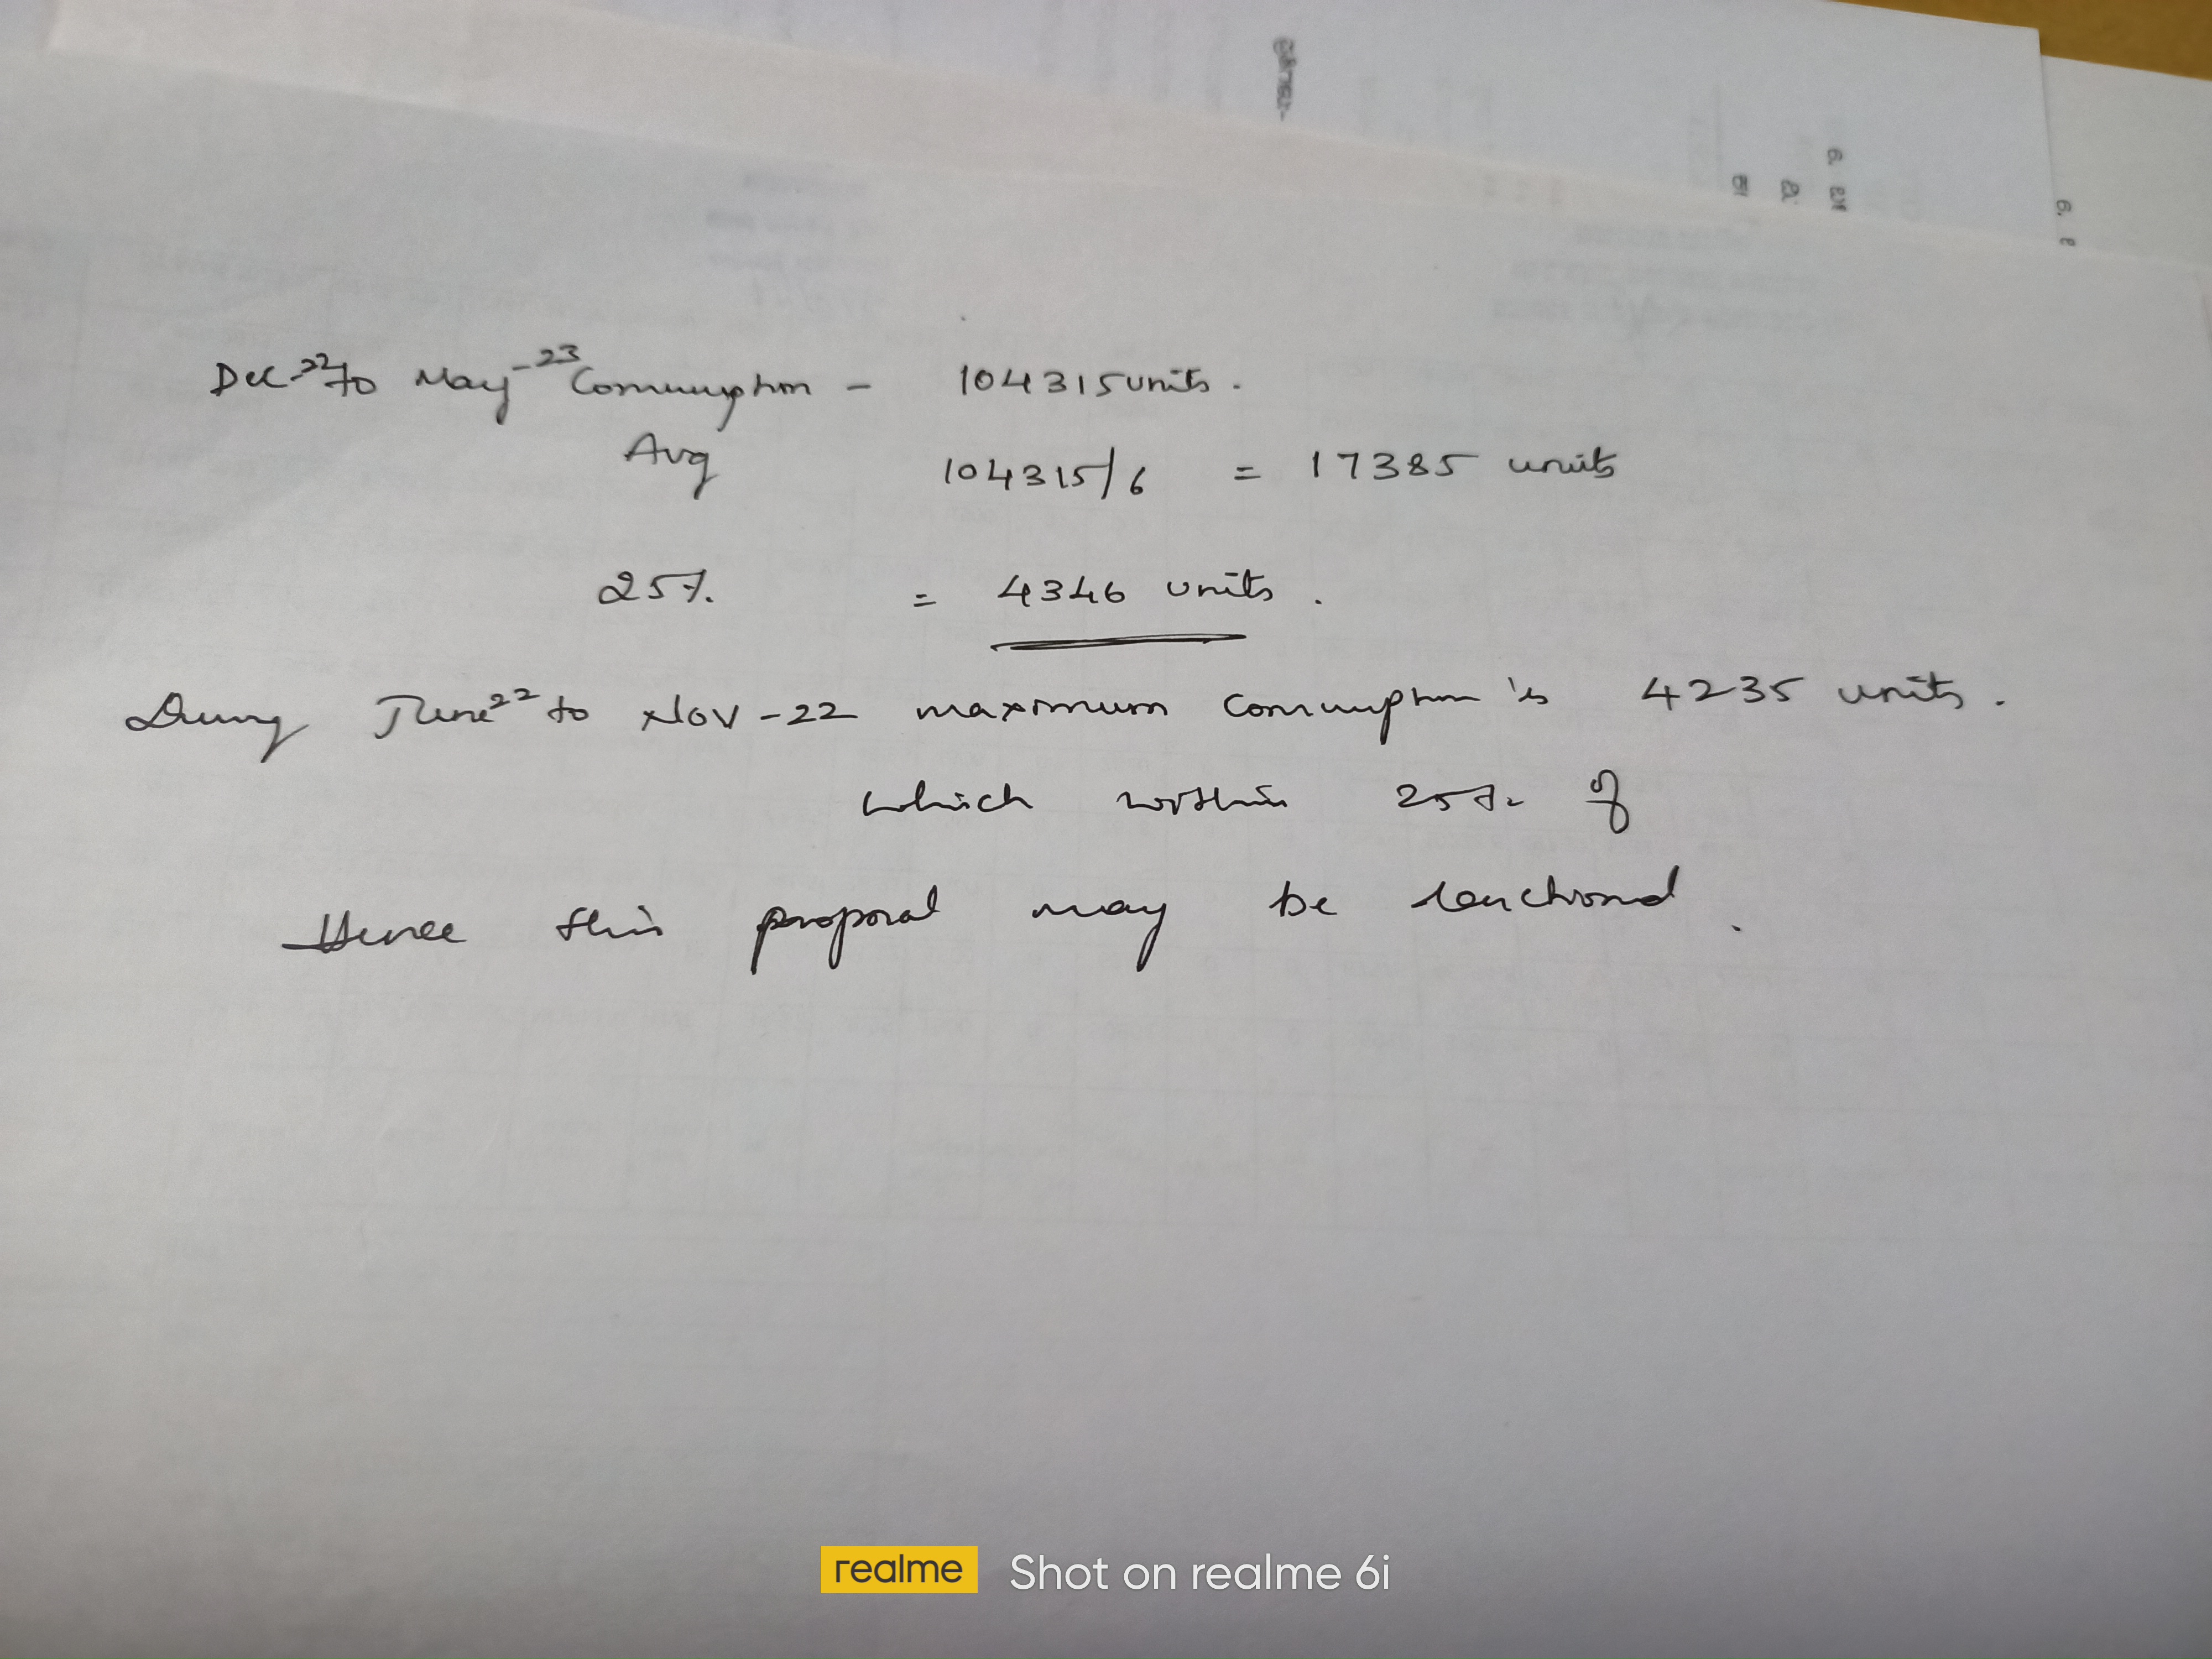 Dec-22 to May-23 Consumption - 104315 units.
Avg 104315/6 = 17385 units
25% = 4346 units.
During June 22 to Nov-22 maximum consumption is 4235 units.
which within 25% of
Hence this proposal may be sanctioned.
realme Shot on realme 6i